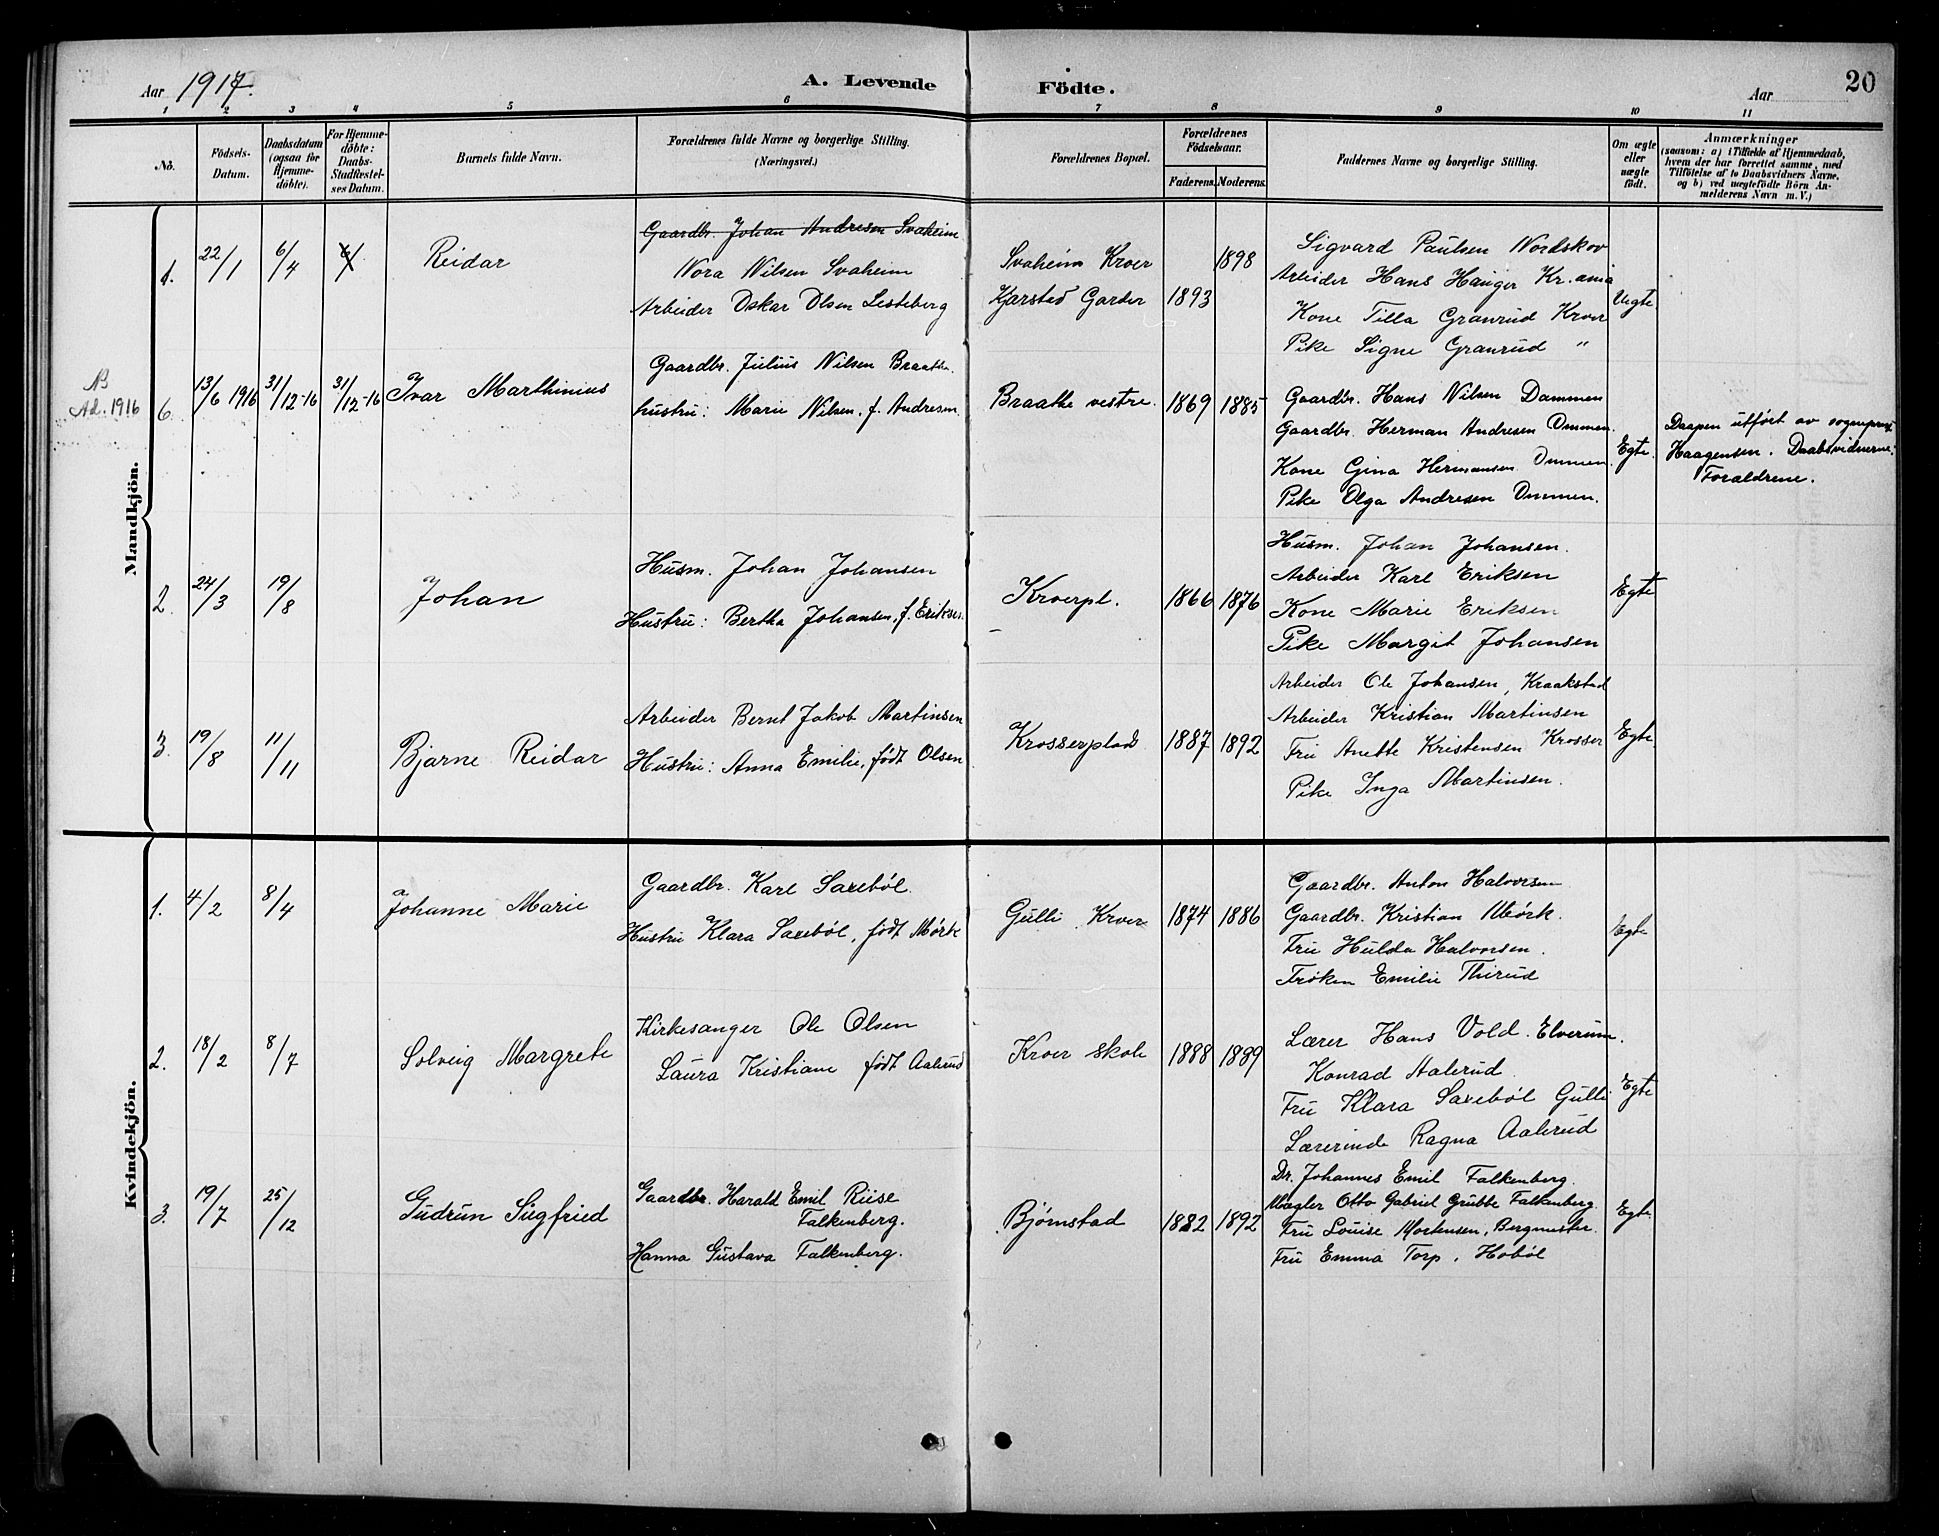 Aar 1917. A. Levende Födte. Aar 20
1 2 3 4 5 6 7 8 9 10 11
No. Födsels-Datum. Daabsdatum (ogsaa for Hjemme-döbte). For Hjemme-döbte: Daabs-Stadfæstel-ses Datum. Barnets fulde Navn. Forældrenes fulde Navne og borgerlige Stilling. (Næringsvei.) Forældrenes Bopæl. Forældrenes Födselsaar. Faderens. Moderens. Faddernes Navne og borgerlige Stilling. Om ægte eller uægte födt. Anmærkninger (saasom: a) i Tilfælde af Hjemmedaab, hvem der har forrettet samme, med Tilföielse af to Daabsvidners Navne, og b) ved uægtefödte Börn An-melderens Navn m. V.)
Mandkjön.
1. 22/1 6/4 6/ Reidar
Gaardbr. Johan Andresen Svaheim
Nora Nilsen Svaheim
Arbeider Oskar Olsen Lesteberg
Svaheim Kroer 1898
Kjarstad Garder 1893
Sigvard Paulsen Nordskov
Arbeider Hans Hauger Kr.ania
Kone Tilla Granrud Kroer
Pike Signe Granrud "
Uegte.
NB
Ad. 1916
6. 13/6 1916 31/12-16 31/12-16 Ivar Marthinius
Gaardbr. Julius Nilsen Braathe.
hustru: Marie Nilsen, f. Andresen
Braathe vestre. 1869 1885
Gaardbr. Hans Nilsen Dammen
Gaardbr. Herman Andresen Ommen.
Kone Gina Hermansen Ommen
Pike Olga Andresen Ommen.
Egte.
Daapen utført av sogneprest
Haagensen. Daabsvidnerne:
Forældrene.
2. 24/3 19/8 Johan
Husm. Johan Johansen
Hustru: Bertha Johansen, f. Eriksen.
Kroerpl. 1866 1876
Husm. Johan Johansen.
Arbeider Karl Eriksen
Kone Marie Eriksen
Pike Margit Johansen
Egte
3. 19/8 11/11 Bjarne Reidar
Arbeider Bernt Jakob Martinsen
Hustru: Anna Emilie, født Olsen
Krosserplads 1887 1892
Arbeider Ole Johansen, Kraakstad
Arbeider Kristian Martinsen
Fru Anette Kristensen Krosser
Pike Inga Martinsen.
Egte.
Kvindekjön.
1. 4/2 8/4 Johanne Marie
Gaardbr. Karl Saxebøl.
Hustru Klara Saxebøl, født Mørk
Gulli Kroer 1874 1886
Gaardbr. Anton Halvorsen
Gaardbr. Kristian Mørk.
Fru Hulda Halvorsen.
Frøken Emilie Thirud
Egte
2. 18/2 8/7 Solveig Margrete
Kirkesanger Ole Olsen
Laura Kristiane født Aalerud
Kroer skole 1888 1889
Lærer Hans Vold. Elverum.
Konrad Aalerud.
Fru Klara Saxebøl Gulli
Lærerinde Ragna Aalerud
Egte
3. 19/7 25/12 Gudrun Sugfried
Gaardbr. Harald Emil Riise
Falkenberg.
Hanna Gustava Falkenberg.
Bjørnstad 1882 1892
Dr. Johannes Emil Falkenberg.
Mægler Otto Gabriel Grubbe Falkenberg.
Fru Louise Mortensen, Bergmester.
Fru Emma Torp, Hobøl
Egte.